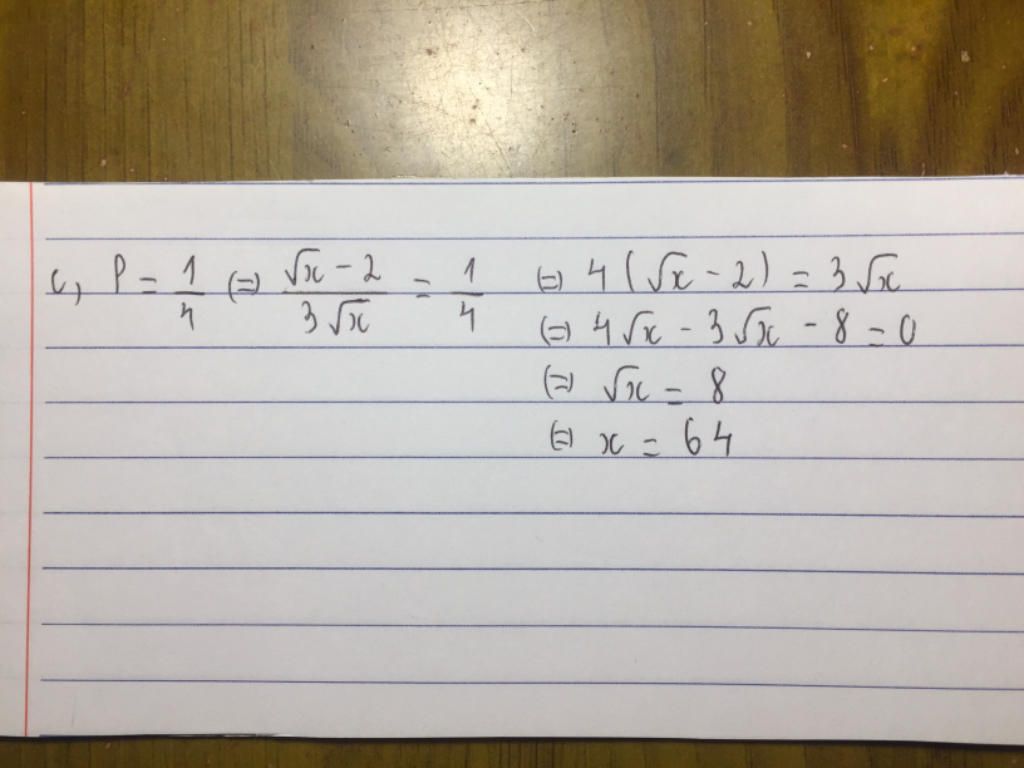 c, P = 1/4 (=) (√x - 2)/(3√x) = 1/4 (=) 4(√x - 2) = 3√x
(=) 4√x - 3√x - 8 = 0
(=) √x = 8
(=) x = 64